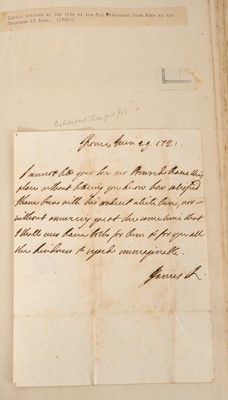 Letter written by the wife of the Old Pretender from Rome to the
Duchess of
Rome June 29. 1721.
I cannot let your son
place without letting you know how satisfied
I have been with his conduct while here, nor
without assuring you at the same time that
I shall ever have both for him & for you all
the kindness & regard imaginable.
James R